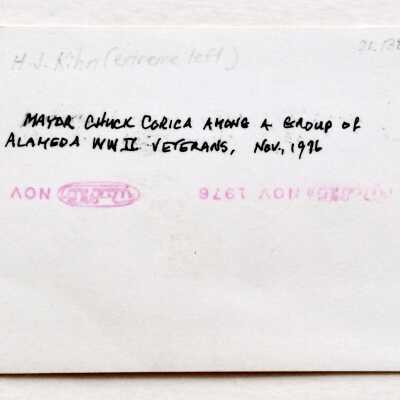 H.J. Kihn (extreme left)
MAYOR CHUCK CORICA AMONG A GROUP OF
ALAMEDA WWII VETERANS, NOV, 1976
NOV 1976 NOV